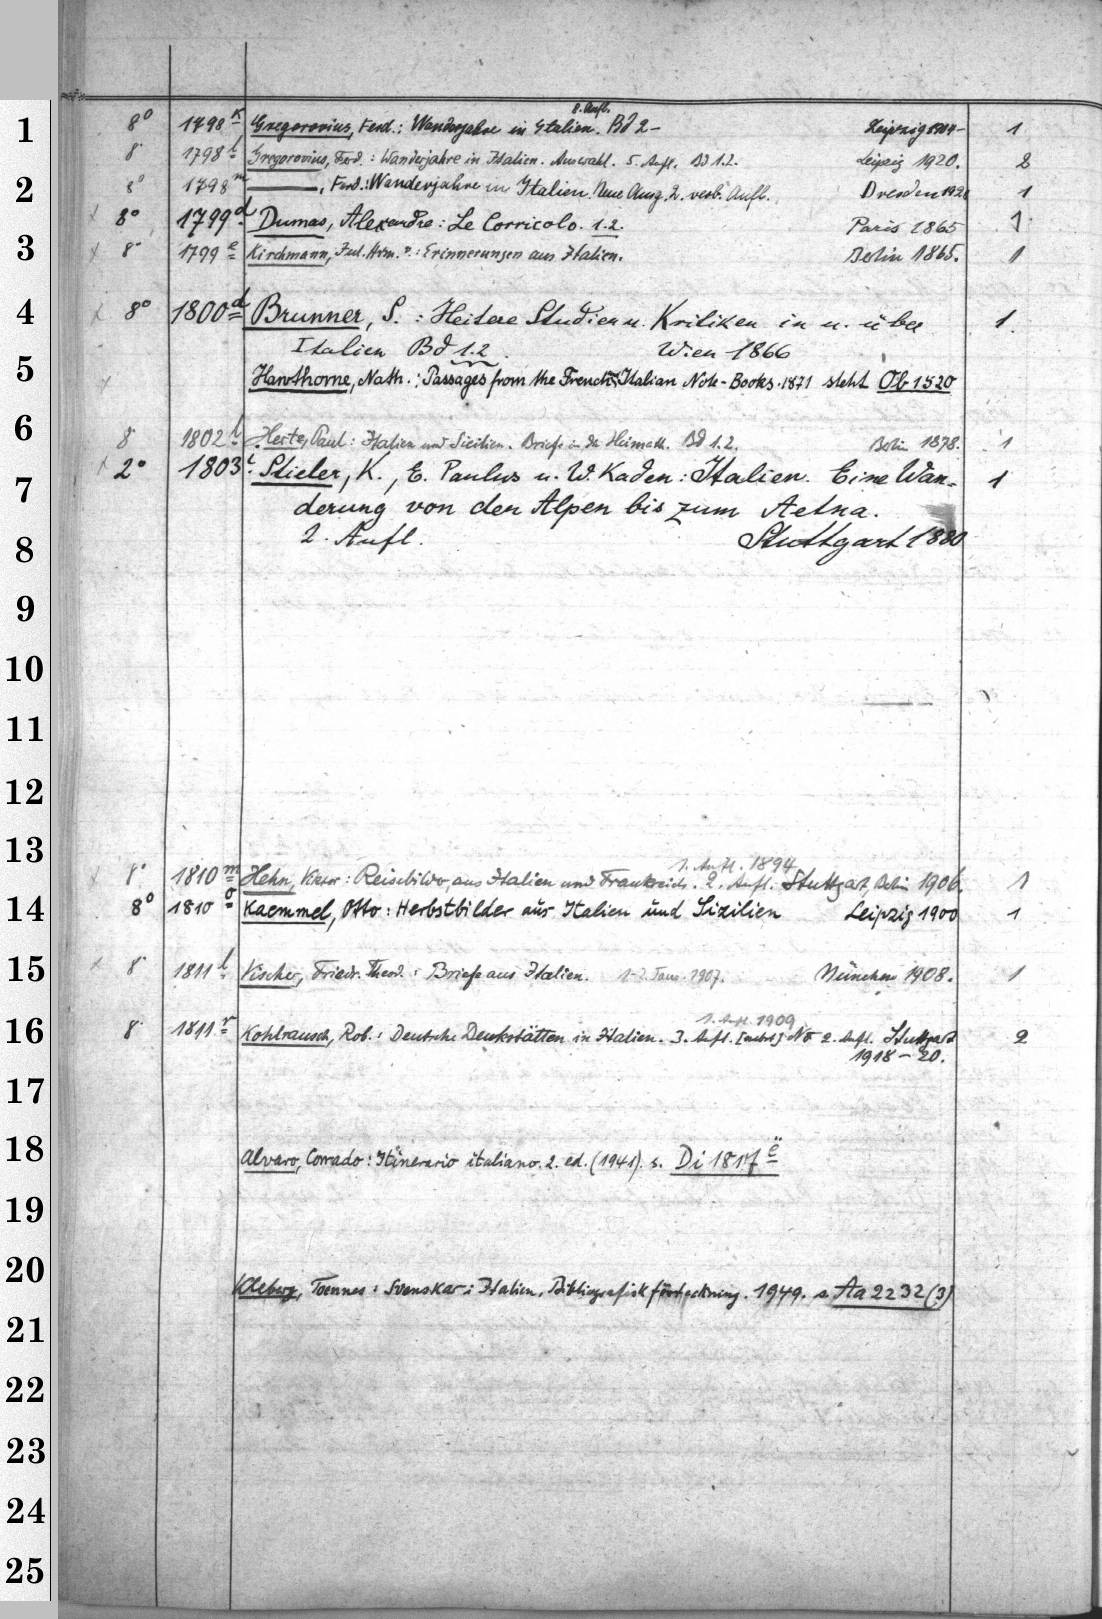 8. Aufl.
1 8° 1798 k Gregorovius, Ferd.: Wanderjahre in Italien. Bd 2- Leipzig 1904- 1
8° 1798 l Gregorovius, Ferd.: Wanderjahre in Italien. Auswahl. 5. Aufl. Bd 1.2. Leipzig 1920. 2
2 8° 1798 m ———, Ferd.: Wanderjahre in Italien. Neue Ausg. 2. verb. Aufl. Dresden 1
8° 1799 d Dumas, Alexandre: Le Corricolo. 1.2. Paris 1865 1
3 8° 1799 e Kirchmann, Jul. Herm. v.: Erinnerungen aus Italien. Berlin 1865. 1
4 8° 1800 d Brunner, S.: Heitere Studien u. Kritiken in u. über 1.
Italien Bd 1.2. Wien 1866
5 Hawthorne, Nath.: Passages from the French & Italian Note-Books. 1871 steht Ob 1520
6 8° 1802 l Paul: Italien und Sicilien. Briefe in die Heimath. Bd 1.2. Berlin 1878. 1
7 2° 1803 i Stieler, K., E. Paulus u. W. Kaden: Italien. Eine Wan- 1
derung von den Alpen bis zum Aetna.
8 2. Aufl. Stuttgart 1880
9
10
11
12
13
1. Aufl. 1894
8° 1810 m Hehn, Victor: Reisebilder aus Italien und Frankreich. 2. Aufl. Stuttgart, Berlin 1906. 1
14 8° 1810 o Kaemmel, Otto: Herbstbilder aus Italien und Sizilien Leipzig 1900 1
15 8° 1811 l Vischer, Friedr. Theod.: Briefe aus Italien. 1-2. Taus. 1907. München 1908. 1
1. Aufl. 1909
16 8° 1811 r Kohlrausch, Rob.: Deutsche Denkstätten in Italien. 3. Aufl. 2. Aufl. Stuttgart 2
1918-20.
17
18 Alvaro, Corrado: Itinerario italiano. 2. ed. (1941). s. Di 1817 ë
19
20 Kleberg, Toennes: Svenskar i Italien. Bibliografisk förteckning. 1949. s. Aa 2232 (3)
21
22
23
24
25